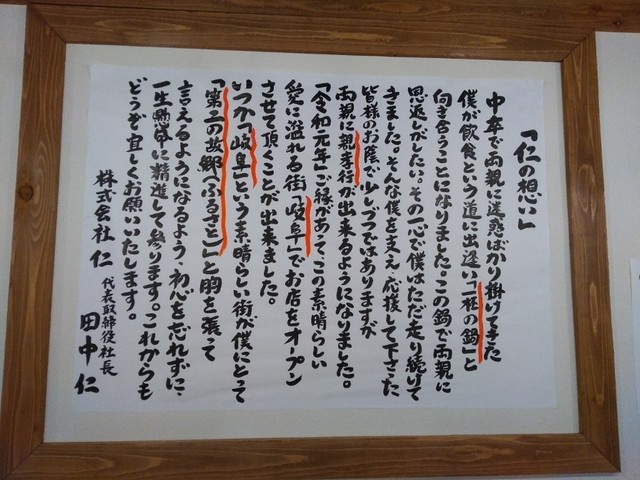 「仁の想い」
中卒で両親に迷惑ばかり掛けてきた
僕が飲食という道に出逢い「一杯の鍋」と
向き合うことになりました。この鍋で両親に
恩返しがしたい、その一心で僕はただ走り続けて
きました。そんな僕を支え、応援して下さった
皆様のお陰で少しづつではありますが
両親に親孝行が出来るようになりました。
「令和元年」ご縁があって、この素晴らしい
愛に溢れる街「岐阜」でお店をオープン
させて頂くことが出来ました。
いつか「岐阜」という素晴らしい街が僕にとって
「第二の故郷（ふるさと）」と胸を張って
言えるようになるよう、初心を忘れずに、
一生懸命に精進して参ります。これからも
どうぞ宜しくお願いいたします。
株式会社 仁 代表取締役社長
田中 仁